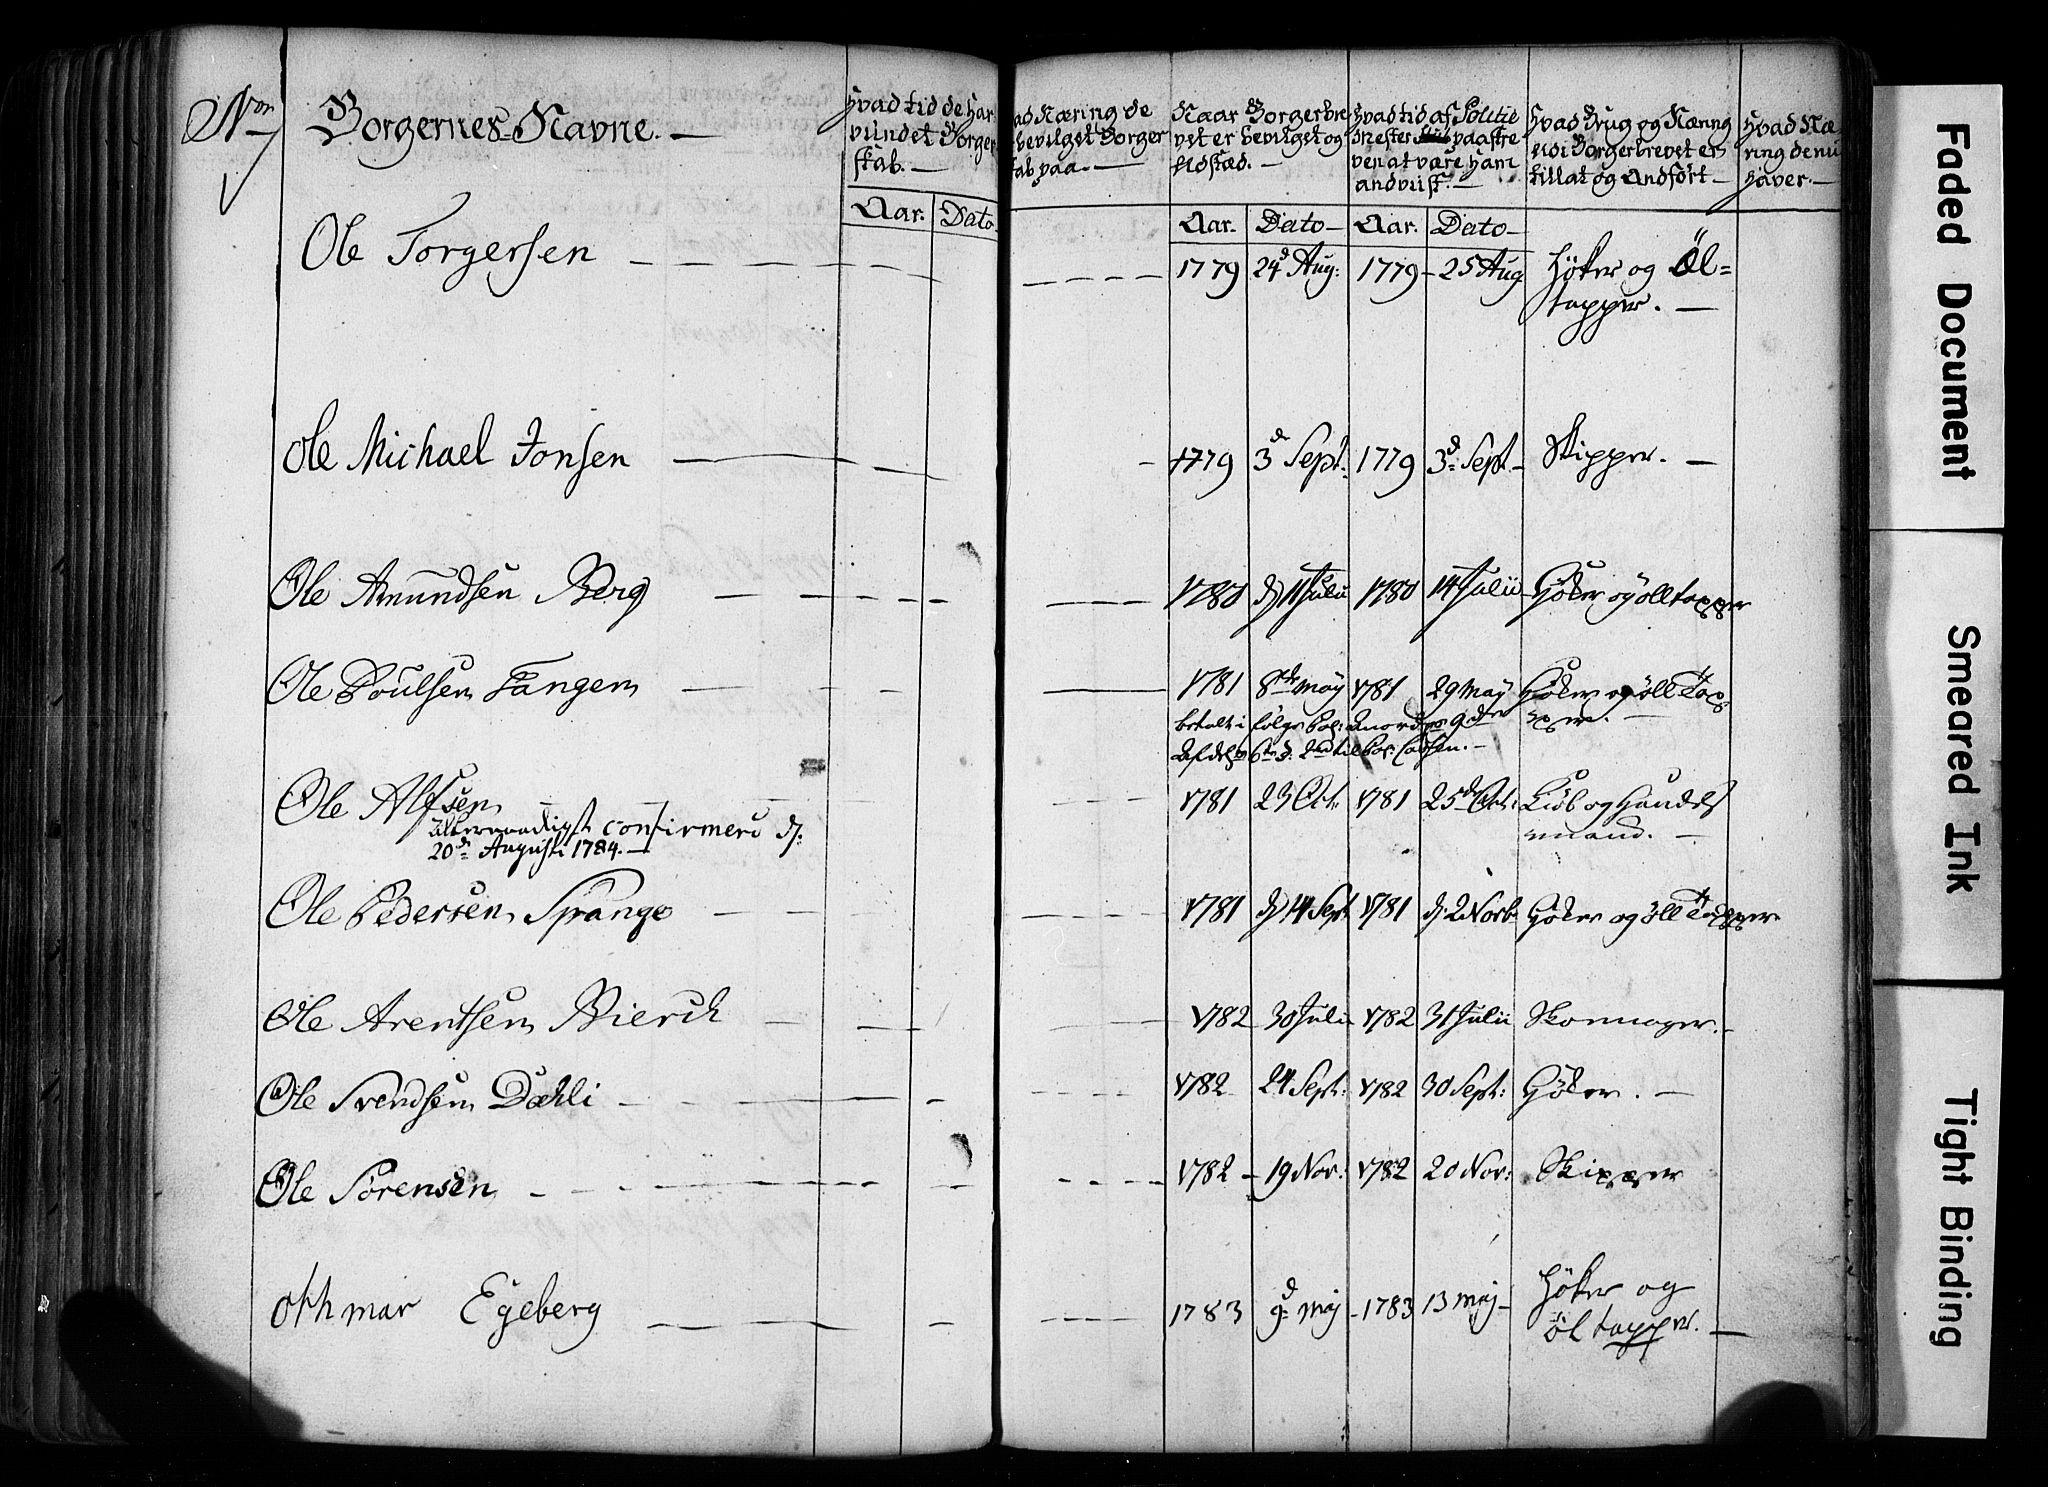 Non
Borgernes Navne. —
Hvad tid de har
vundet Borger
skab. —
Aar. Dato
ad Næring de
bevilget Borger
kab paa. —
Naar Borgerbre
vet er bevilget og
udstæd. —
Aar. Dato
Hvad tid af Politie
Mester paaskre
ven at være ham
andviist. —
Aar. Dato
Hvad Brug og Næring
udi Borgerbrevet er
tillat og Andført —
Hvad Næ
ring de nu
haver. —
Ole Torgersen — 1779 24d Aug: 1779 25 Aug Höker og Öl=
tapper. —
Ole Michael Jonsen — 1779 3d Sept. 1779 3d Sept. Skipper. —
Ole Amundsen Berg — 1780 d 11 Julii 1780 14 Julii Höker og ölltapper
Ole Poulsen Tangen — 1781 8de May 1781 29 May Höker og öll Tap
per. —
Ole Alfsen — 1781 23 Oct. 1781 25d Oct: Kiöb og Handels
mand. —
allernaadigst confirmeret d:
20de Augusti 1784. —
Ole Pedersen Spange — 1781 d 14 Sept 1781 d. 2 Novb. Höker og öll Tapper
Ole Arentsen Bierck — 1782 30 Julii 1782 31 Julii Skomager. —
Ole Svendsen Dæhli — 1782 24 Sept: 1782 30 Sept: Höker. —
Ole Sörensen — 1782 19 Nov: 1782 20 Nov: Skipper
Othmar Egeberg — 1783 9d Maj 1783 13 Maj Höker og
öltapper. —
Faded Document
Smeared Ink
Tight Binding